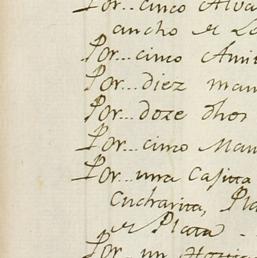 Por... cinco Alva
ancho el La
Por... cinco Ami
Por... diez man
Por... doze dhos
Por... cinco Man
Por... una Cajita
Cucharita, Pla
el Plata -
Por... un